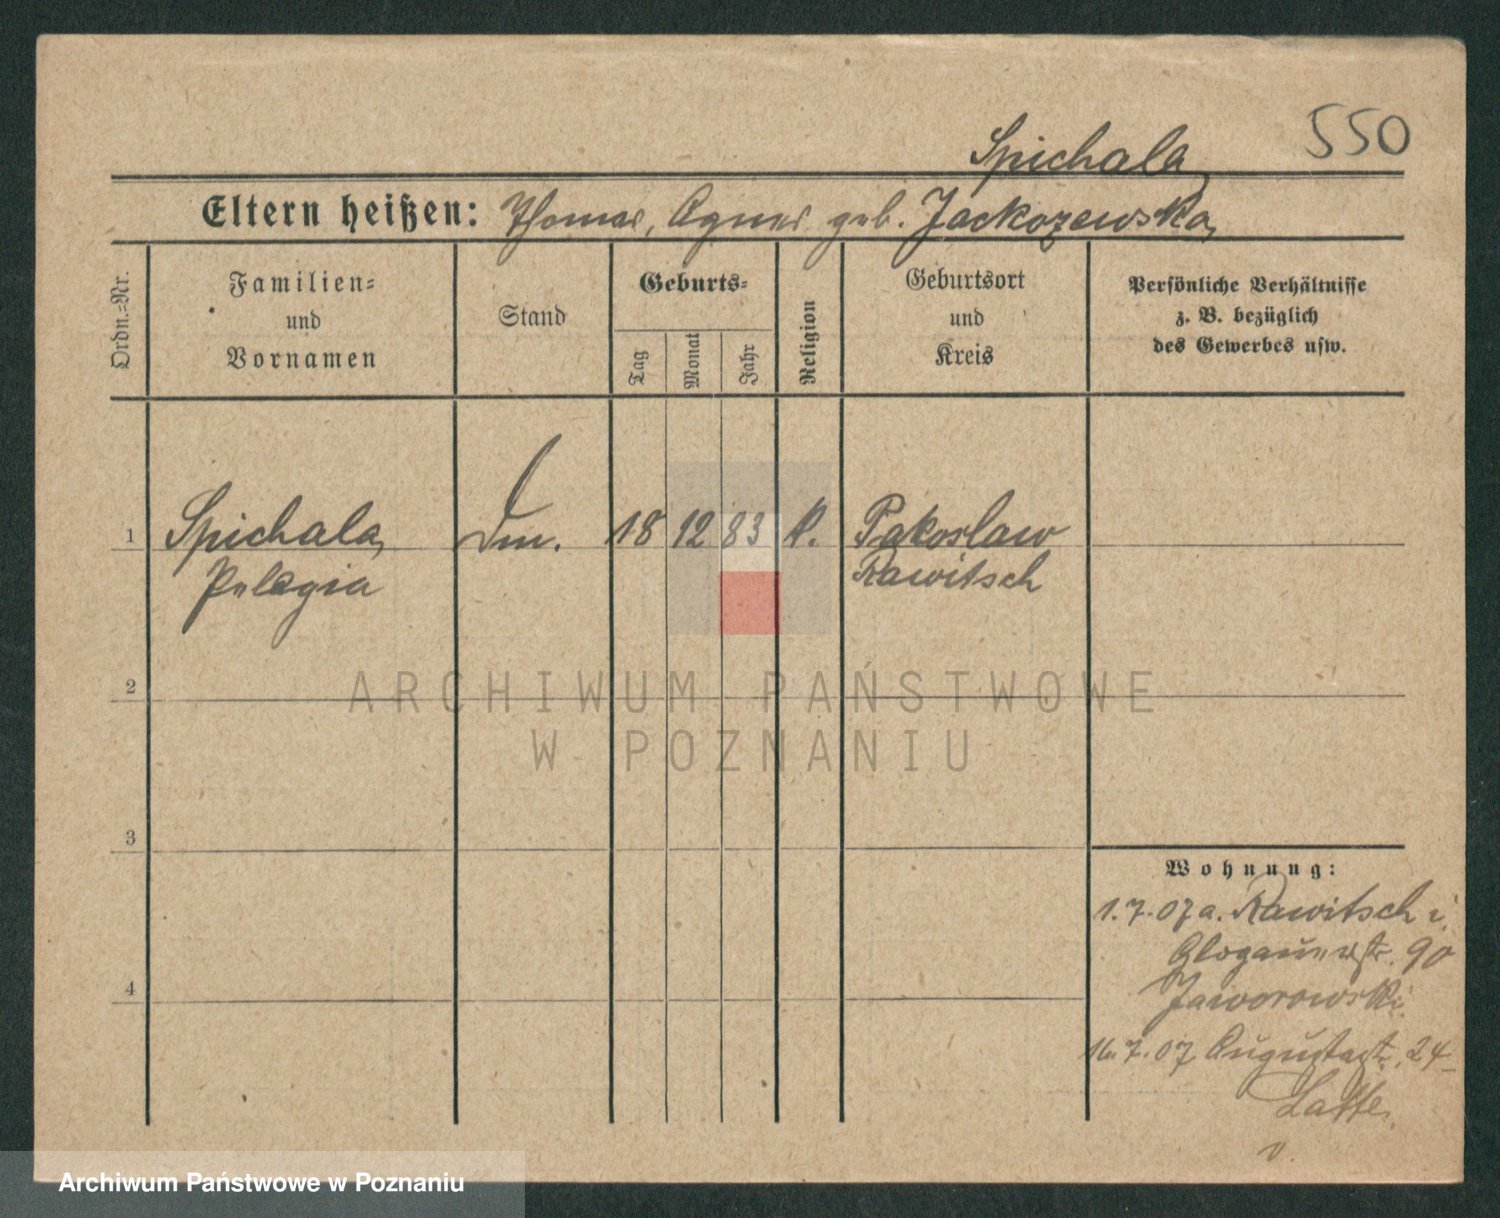 550
Spichala
Eltern heißen: Thomas, Agnes geb. Jackozewska
Ordn.-Nr.
Familien-
und
Vornamen
Stand
Geburts-
Tag
Monat
Jahr
Religion
Geburtsort
und
Kreis
Persönliche Verhältnisse
z. B. bezüglich
des Gewerbes usw.
1 Spichala Dm. 18 12 83 k. Pakoslaw
Pelagia Rawitsch
2
ARCHIWUM PAŃSTWOWE
W POZNANIU
3
Wohnung:
1.7.07 a. Rawitsch i.
Glogauerstr. 90
4
Jaworowski.
16.7.07 Augustastr. 24
Latte
v.
Archiwum Państwowe w Poznaniu